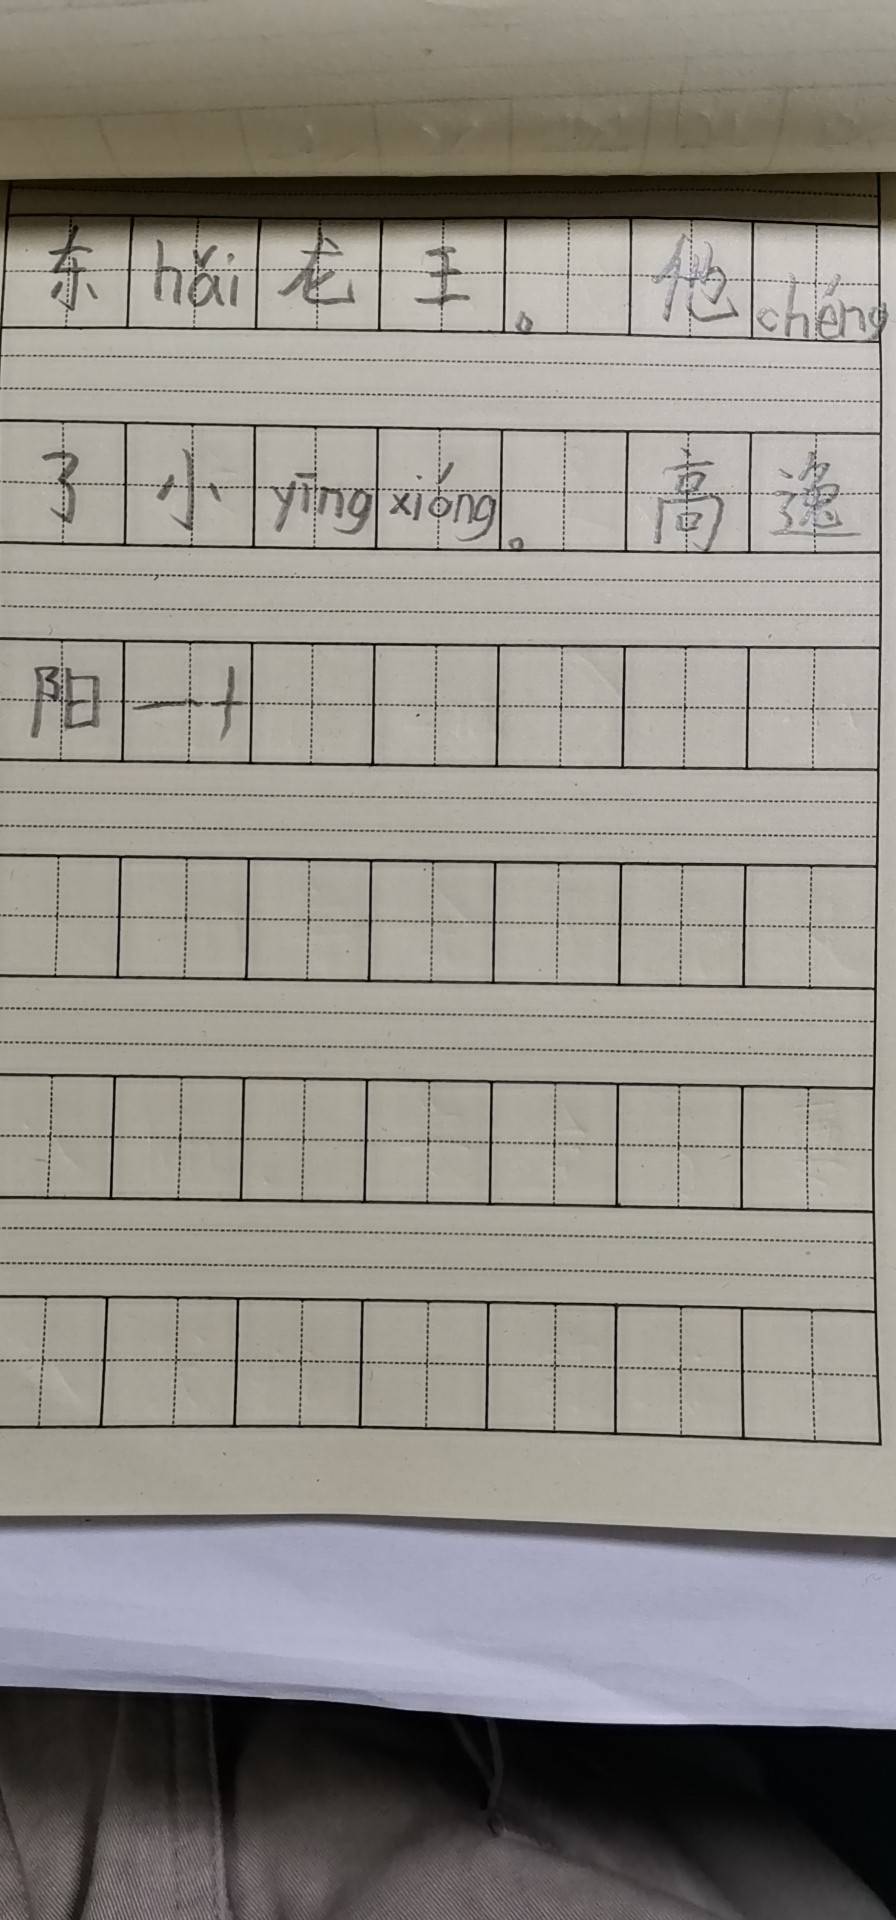 东hǎi龙王。他chéng
了小yīngxióng。高逸
阳一十